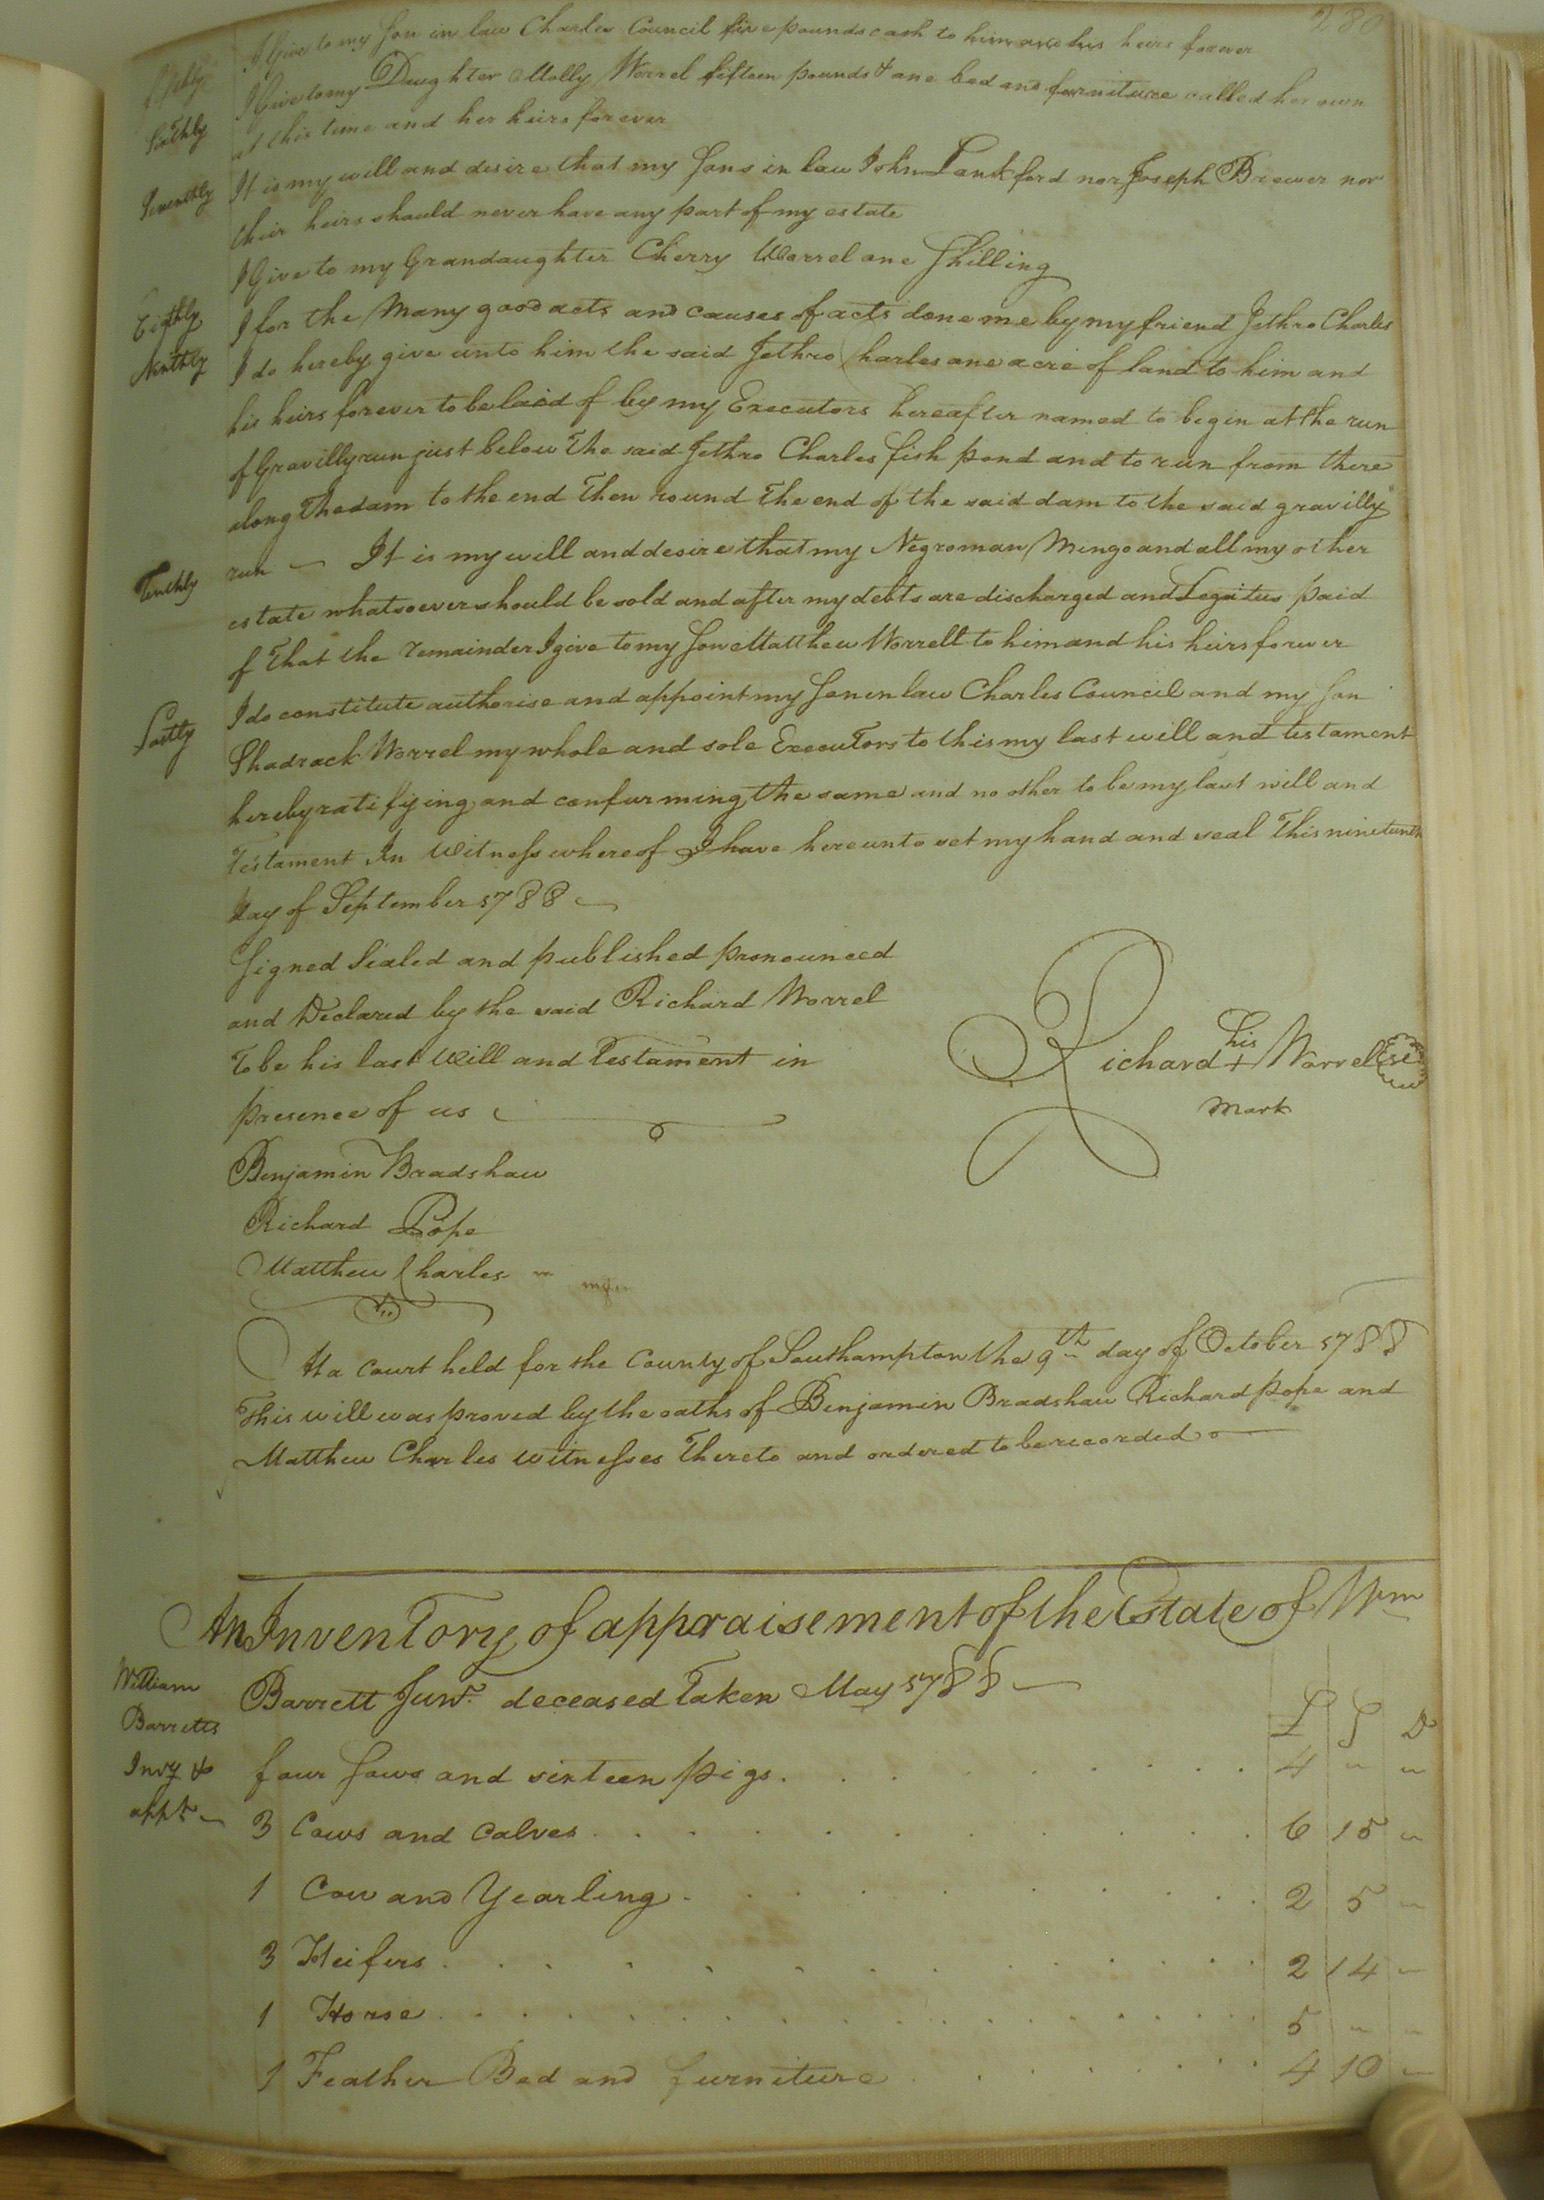 280
fifthly I Give to my Son in law Charles Council five pounds cash to him and his heirs forever
Sixthly I Give to my Daughter Molly Worrel fifteen pounds & one bed and furniture called her own
at this time and her heirs forever
Seventhly It is my will and desire that my Sons in law John Lankford nor Joseph Brewer nor
their heirs should never have any part of my estate
Eigthly I Give to my Grandaughter Cherry Worrel one Shilling
Ninthly I for the Many good acts and causes of acts done me by my friend Jethro Charles
I do hereby give unto him the said Jethro Charles one acre of land to him and
his heirs forever to be laid of by my Executors hereafter named to begin at the run
of Gravilly run just below the said Jethro Charles fish pond and to run from there
along the dam to the end then round the end of the said dam to the said gravilly
Tenthly run — It is my will and desire that my Negroman Mingo and all my other
estate whatsoever should be sold and after my debts are discharged and Legaties paid
of that the remainder I give to my Son Matthew Worrell to him and his heirs forever
Lastly I do constitute authorise and appoint my Son in law Charles Council and my Son
Shadrack Worrel my whole and sole Executors to this my last will and testament
hereby ratifying and confurming the same and no other to be my last will and
Testament In Witness whereof I have hereunto set my hand and seal this nineteenth
day of September 1788 —
Signed Sealed and published pronounced
and Declared by the said Richard Worrel
To be his last Will and Testament in
presence of us
Richard his + Worrel Seal
mark
Benjamin Bradshaw
Richard Pope
Matthew Charles
At a Court held for the County of Southampton the 9th day of October 1788
This will was proved by the oaths of Benjamin Bradshaw Richard pope and
Matthew Charles witnesses thereto and ordered to be recorded
An Inventory of appraisement of the Estate of Wm
Barrett Junr. deceased Taken May 1788 —
William
Barretts
Invy &
appt
£ S D
four Sows and sixteen pigs . . . 4 " "
3 Cows and Calves . . . 6 15 "
1 Cow and Yearling . . . 2 5 "
3 Heifers . . . 2 14 "
1 Horse . . . 5 " "
1 Feather Bed and furniture . . . 4 10 "